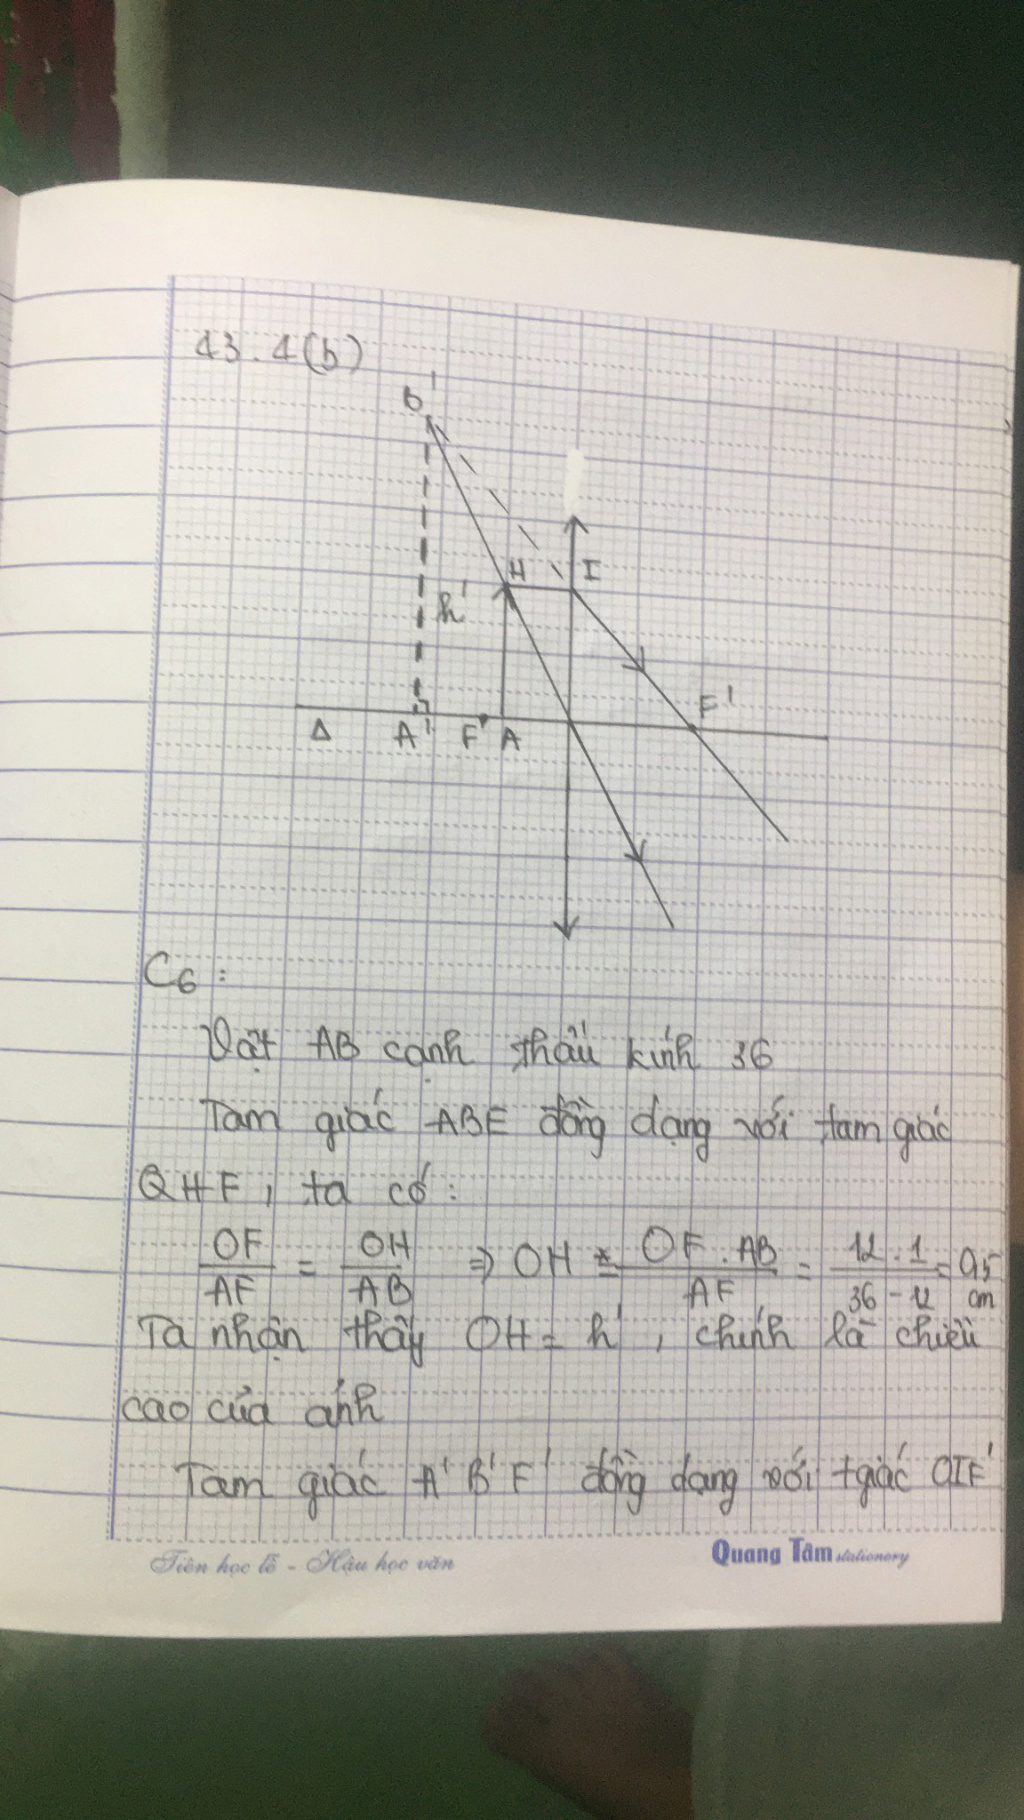 43.4(b)
B'
H I
h'
F'
Δ A' F A
C6:
Vật AB cạnh thấu kính 36
Tam giác ABF đồng dạng với tam giác
OHF, ta có:
OF/AF = OH/AB => OH = OF.AB/AF = 12.1/36-12 = 0,5 cm
Ta nhận thấy OH = h', chính là chiều
cao của ảnh
Tam giác A'B'F' đồng dạng với tgiác OIF'
Tiên học lễ - Hậu học văn
Quang Tâm stationery